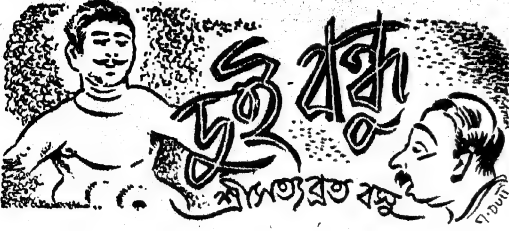 দুই বন্ধু
শ্রীসত্যব্রত বসু
M. DUTT